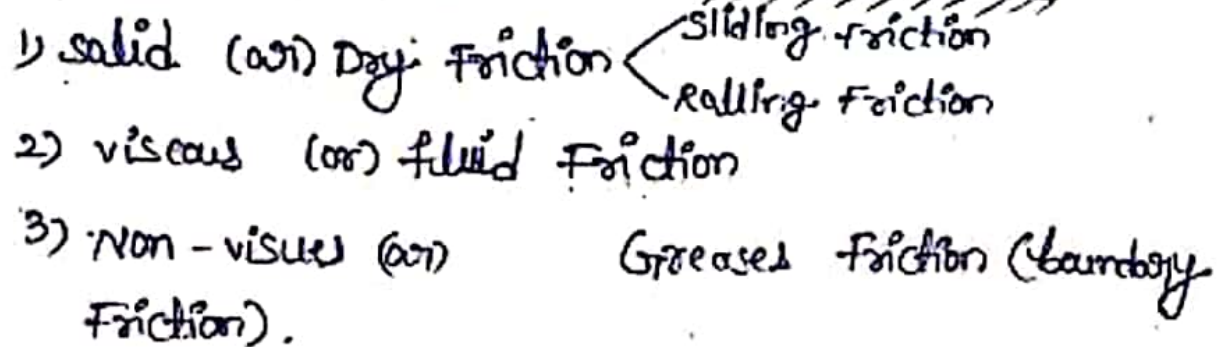 Sliding friction
1) solid (or) Dry Friction
Rolling Friction
2) viscous (or) fluid Friction
3) Non - visues (or) Greases friction (boundary
Friction).